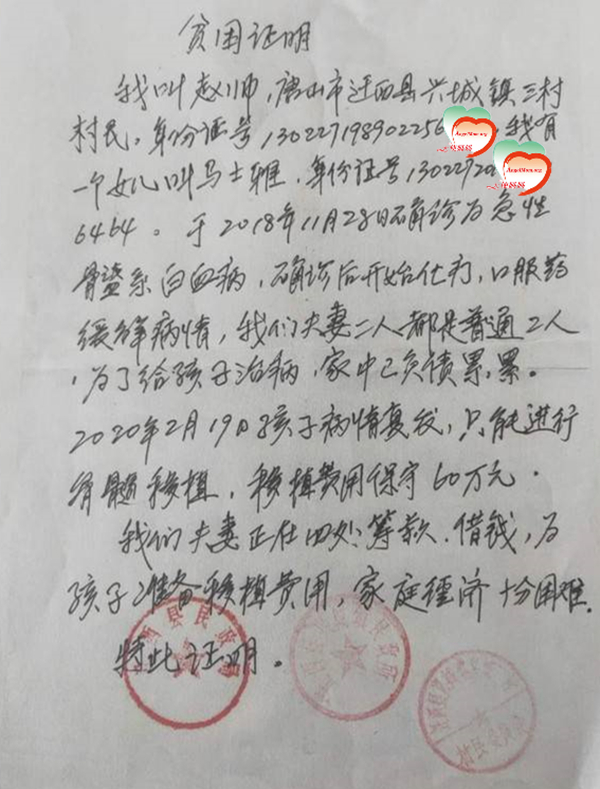 贫困证明
我叫赵帅，唐山市迁西县兴城镇三村
村民，身份证号130227198902256，我有
一个女儿叫马士雅，身份证号1302272
6464。于2018年11月28日确诊为急性
骨髓系白血病，确诊后开始化疗，口服药
缓解病情，我们夫妻二人都是普通工人
，为了给孩子治病，家中已负债累累。
2020年2月19日孩子病情复发，只能进行
骨髓移植，移植费用保守60万元．
我们夫妻正在四处筹款、借钱，为
孩子准备移植费用，家庭经济十分困难．
特此证明．
西县民政